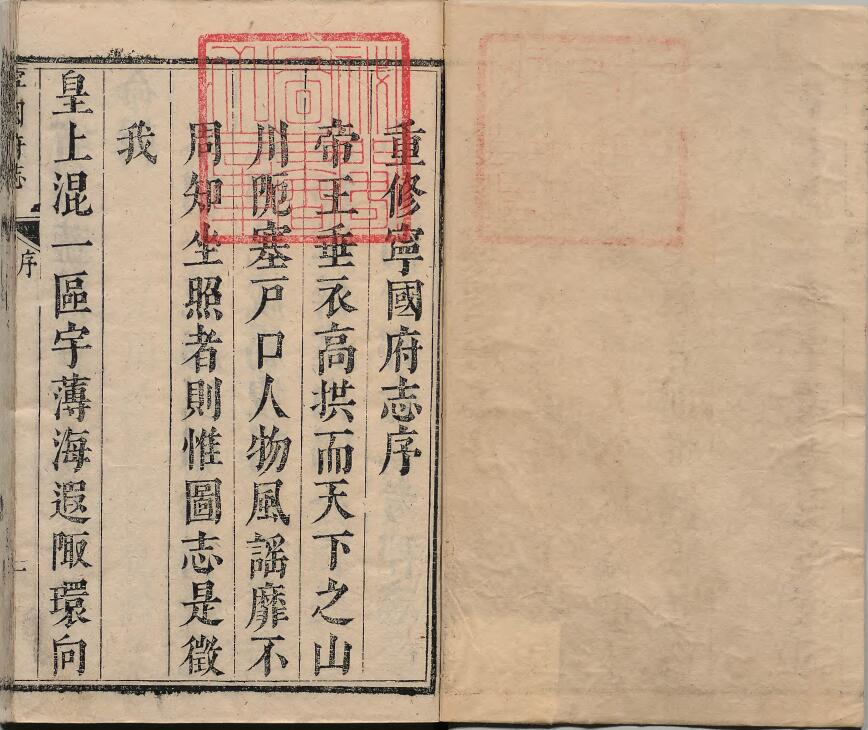 重修寧國府志序
帝王垂衣高拱而天下之山
川阨塞戸口人物風謡靡不
周知坐照者則惟圖志是徵
我
皇上混一區宇薄海遐陬環向
寧國府志
序
一